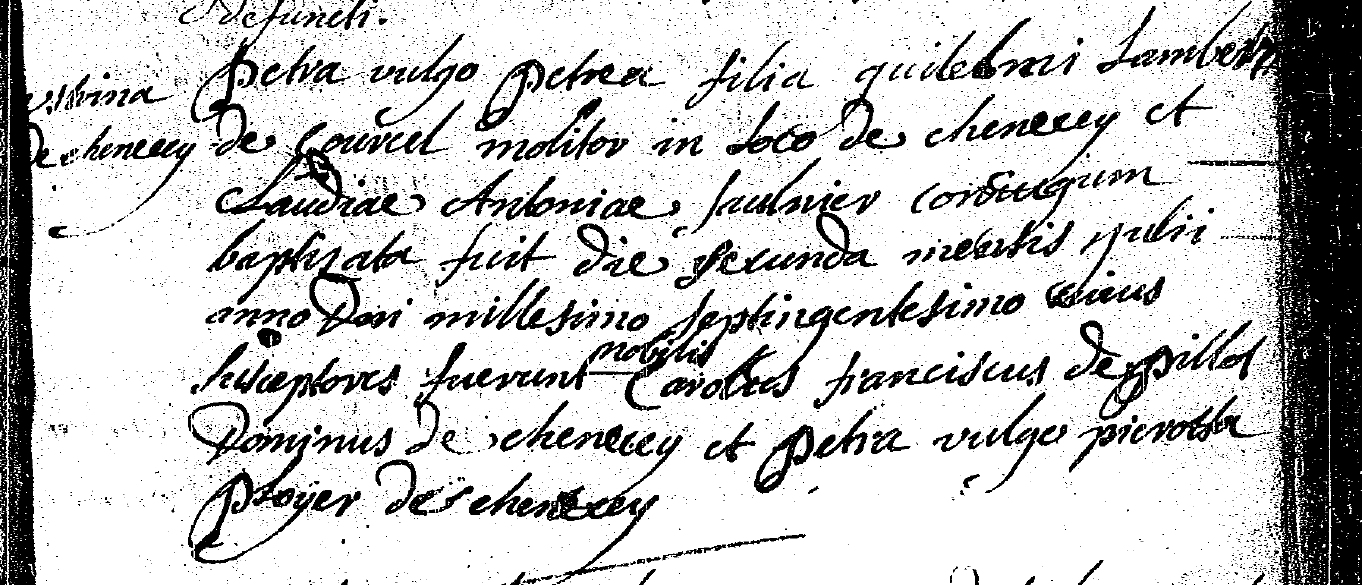 defuncti.
Petra vulgo Petrea filia guilelmi Lambert
de chenecey de Courcel molitor in loco de chenecey et
Claudiae Antoniae Saulnier conjugum
baptizata fuit die secunda mensis julii
anno Dni millesimo septingentesimo
nobilis
susceptores fuerunt Carolus franciscus de Pillot
Dominus de chenecey et Petra vulgo pierotta
Ployer de chenecey